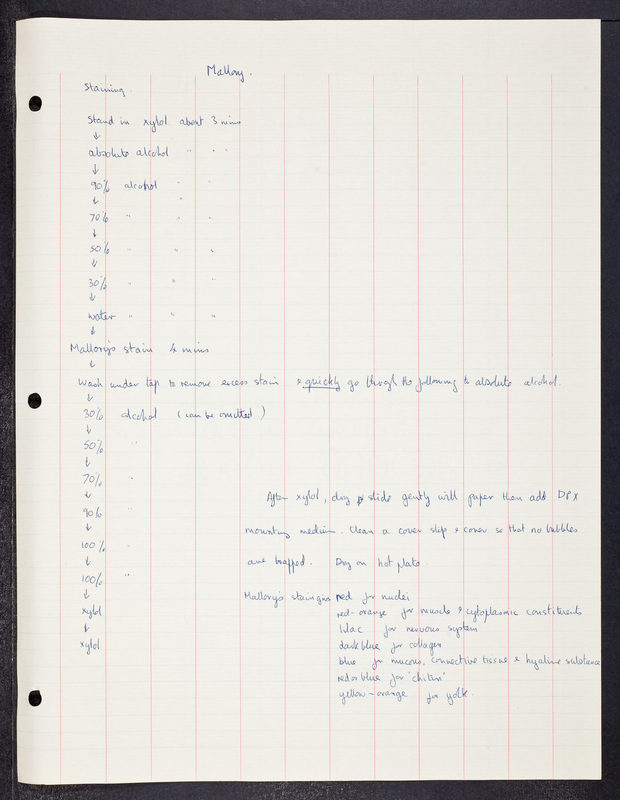 Mallory.
Staining.
Stand in xylol about 3 mins
↓
absolute alcohol " " "
↓
90% alcohol " "
↓ "
70% " " "
↓
50% " " "
↓
30% " " "
↓
water " " "
↓
Mallory's stain 4 mins
↓
Wash under tap to remove excess stain & quickly go through the following to absolute alcohol.
↓
30% alcohol (can be omitted)
↓
50% "
↓
70% "
↓
90% "
↓
100% "
↓
100% "
↓
xylol
↓
xylol
After xylol, dry slide gently will paper then add DPX
mounting medium. Clean a cover slip & cover so that no bubbles
are trapped. Dry on hot plate.
Mallory's stain gives red for nuclei
red-orange for muscle & cytoplasmic constituents
lilac for nervous system
dark blue for collagen
blue for mucous, connective tissue & hyaline substance
red or blue for 'chitin'
yellow-orange for yolk.